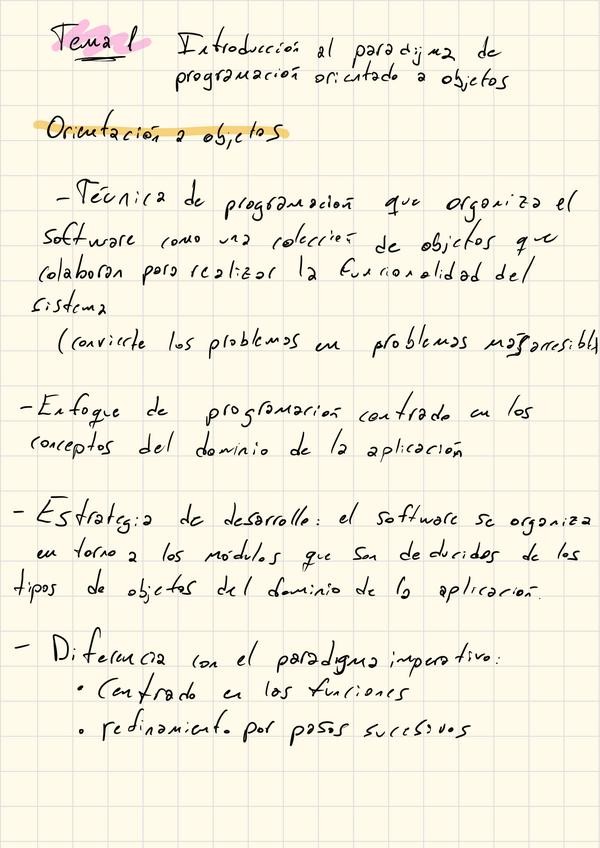 Tema 1 Introducción al paradigma de
programación orientado a objetos
Orientación a objetos
- Técnica de programación que organiza el
software como una colección de objetos que
colaboran para realizar la funcionalidad del
sistema
(convierte los problemas en problemas más accesibles
- Enfoque de programación centrado en los
conceptos del dominio de la aplicación
- Estrategia de desarrollo: el software se organiza
en torno a los módulos que son deducidos de los
tipos de objetos del dominio de la aplicación.
- Diferencia con el paradigma imperativo:
• Centrado en las funciones
• refinamiento por pasos sucesivos